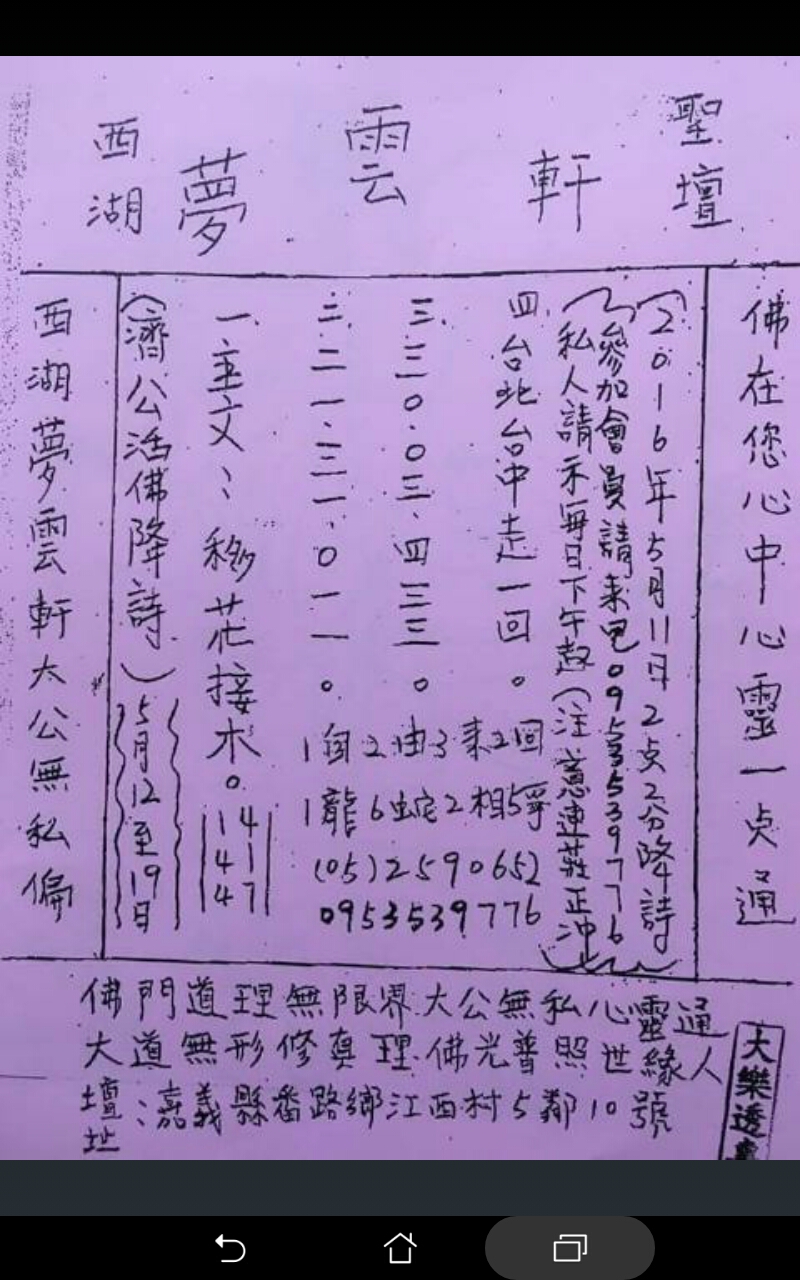 西湖夢雲軒聖壇
西湖夢雲軒大公無私偏
(濟公活佛降詩)
5月12至19日
一、主文：移花接木。
14
41
47
二、二一.三一.0一一。
三、三0.0三、四三三。
四、台北台中走一回。
1自2由3来2回
1龍6蛇2相5爭
(05)2590652
0953539776
私人請示每日下午起(注意連莊正沖)
參加會員請来电0953539776
(2016年5月11日2点2分降詩)
佛在您心中心靈一点通
佛門道理無限界大公無私心靈通
大道無形修真理.佛光普照世緣人
壇址:嘉義縣番路鄉江西村5鄰10號
大樂透